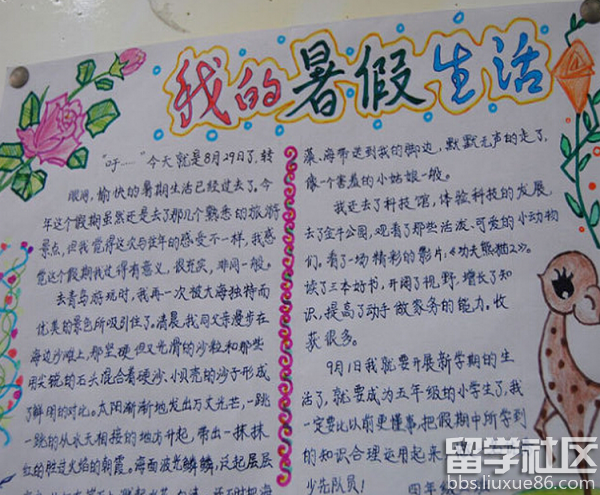 我的暑假生活
"吁……"今天就是8月29日了,转
眼间,愉快的暑期生活已经过去了,今
年这个假期虽然还是去了那几个熟悉的旅游
景点,但我觉得这次与往年的感受不一样,我感
觉这个假期我过得有意义,很充实,非同一般。
去青岛游玩时,我再一次被大海独特而
优美的景色所吸引住了。清晨,我同父亲漫步在
海边沙滩上,那坚硬但又光滑的沙粒和那些
用尖锐的石头混合着硬沙、小贝壳的沙子形成
了鲜明的对比。太阳渐渐地发出万丈光芒,一跳
一跳的从水天相接的地方升起,带出一抹抹
红的胜过火焰的朝霞。海面波光粼粼,泛起层层
藻、海带送到我的脚边,默默无声的走了,
像一个害羞的小姑娘一般。
我还去了科技馆,体验科技的发展,
去了金牛公园,观看了那些活泼、可爱的小动物
们,看了一场精彩的影片:《功夫熊猫2》。
读了三本好书,开阔了视野,增长了知
识,提高了动手做家务的能力。收
获很多。
9月1日我就要开展新学期的生
活了,就要成为五年级的小学生了,我
一定要比以前更懂事,把假期中所学到
的知识合理运用起来
少先队员!
四年级
留学社区
bbs.liuxue86.com